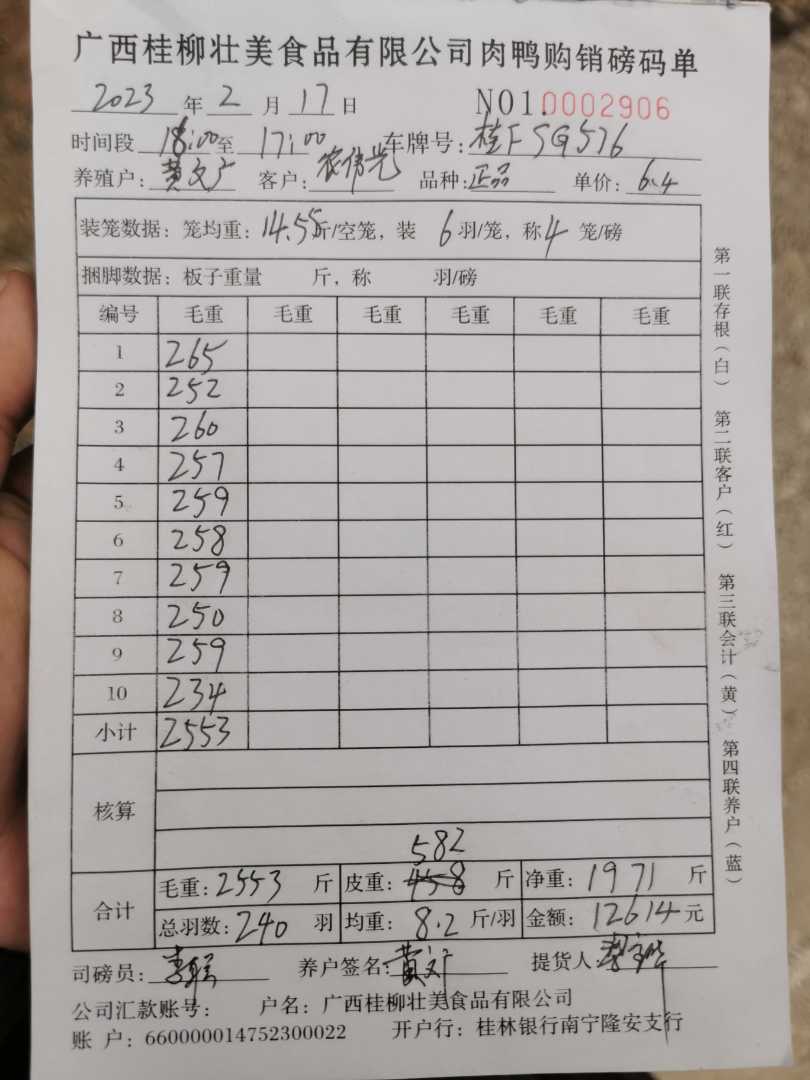 广西桂柳壮美食品有限公司肉鸭购销磅码单
2023 年 2 月 17 日 NO1.0002906
时间段 16:00 至 17:00 车牌号: 桂F SG576
养殖户: 黄文广 客户: 农伟光 品种: 正品 单价: 6.4
装笼数据: 笼均重: 14.55 斤/空笼, 装 6 羽/笼, 称 4 笼/磅
捆脚数据: 板子重量 斤, 称 羽/磅
编号 毛重 毛重 毛重 毛重 毛重 毛重
1 265
2 252
3 260
4 257
5 259
6 258
7 259
8 250
9 259
10 234
小计 2553
核算
582
合计 毛重: 2553 斤 皮重: 458 斤 净重: 1971 斤
总羽数: 240 羽 均重: 8.2 斤/羽 金额: 12614 元
司磅员: 养户签名: 黄文广 提货人:
公司汇款账号: 户名: 广西桂柳壮美食品有限公司
账 户: 660000014752300022 开户行: 桂林银行南宁隆安支行
第一联存根(白) 第二联客户(红) 第三联会计(黄) 第四联养户(蓝)